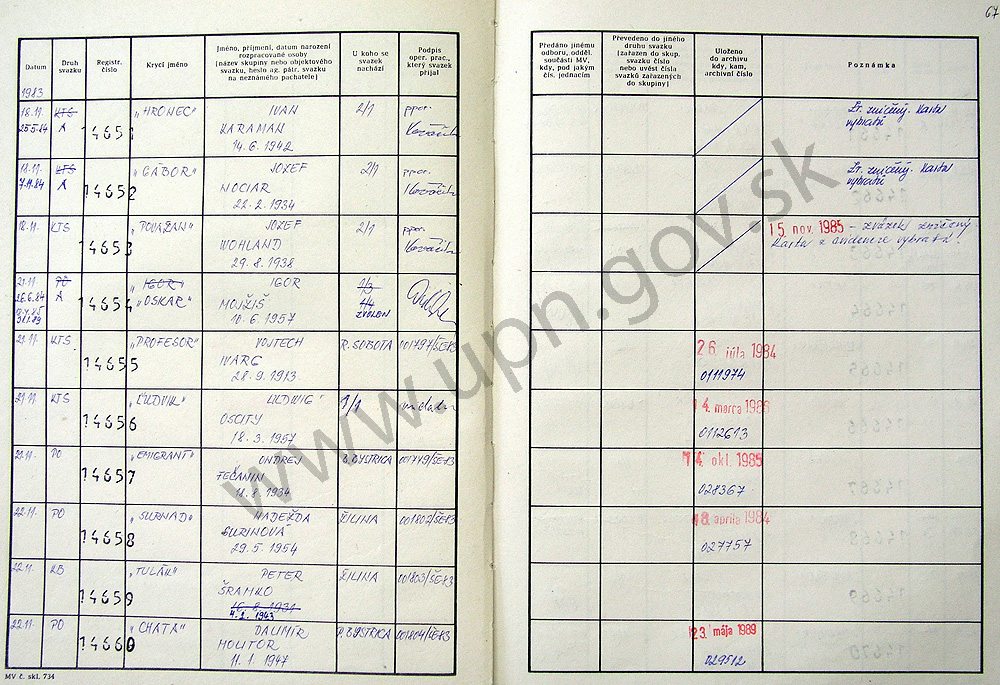 67
Datum
Druh svazku
Registr. číslo
Krycí jméno
Jméno, příjmení, datum narození
rozpracované osoby
(název skupiny nebo objektového
svazku, heslo ag. pátr. svazku
na neznámého pachatele)
U koho se
svazek
nachází
Podpis
oper. prac.,
který svazek
přijal
Předáno jinému
odboru, odděl.
součásti MV,
kdy, pod jakým
čís. jednacím
Převedeno do jiného
druhu svazku
(zařazen do skup.
svazku číslo
nebo uvést čísla
svazků zařazených
do skupiny)
Uloženo
do archivu
kdy, kam,
archivní číslo
Poznámka
1983
18.11. KTS 14651 „HRONEC" IVAN 2/1 ppor.
25.5.84 A KARAMAN Kováčik
14.6.1942
Zv. zničený. Karta
vybratá
18.11. KTS 14652 „GÁBOR" JOZEF 2/1 ppor.
7.11.84 A NOCIAR Kováčik
22.2.1934
Zv. zničený. Karta
vybratá
18.11. KTS 14653 „POVAŽAN" JOZEF 2/1 ppor.
WOHLAND Kováčik
29.8.1938
15. nov. 1985 - zväzok zničený
Karta z evidencie vybratá.
21.11. PO 14654 „IGOR" IGOR 1/3
26.6.84 A „OSKAR" MOJŽIŠ 1/4
10.6.1957 ZVOLEN
21.11. KTS 14655 „PROFESOR" VOJTECH R. SOBOTA 001797/ŠE-83
IVARG
28.9.1913
26. júla 1984
0111974
21.11. KTS 14656 „ĽUDVIK" LUDWIG 1/1
OSCITY
18.3.1957
14. marca 1986
0112613
22.11. PO 14657 „EMIGRANT" ONDREJ B. BYSTRICA 001749/ŠE-83
FEČANIN
11.8.1934
14. okt. 1985
028367
22.11. PO 14658 „SURNAD" NADEŽDA ŽILINA 001802/ŠE-83
SURINOVÁ
29.5.1954
18. apríla 1984
027757
22.11. KB 14659 „TULÁK" PETER ŽILINA 001803/ŠE-83
ŠRAMKO
16.8.1931
4.2.1943
22.11. PO 14660 „CHATA" DALIMÍR B. BYSTRICA 001804/ŠE-83
MOLITOR
11.1.1947
23. mája 1989
029512
MV č. skl. 734
www.upn.gov.sk